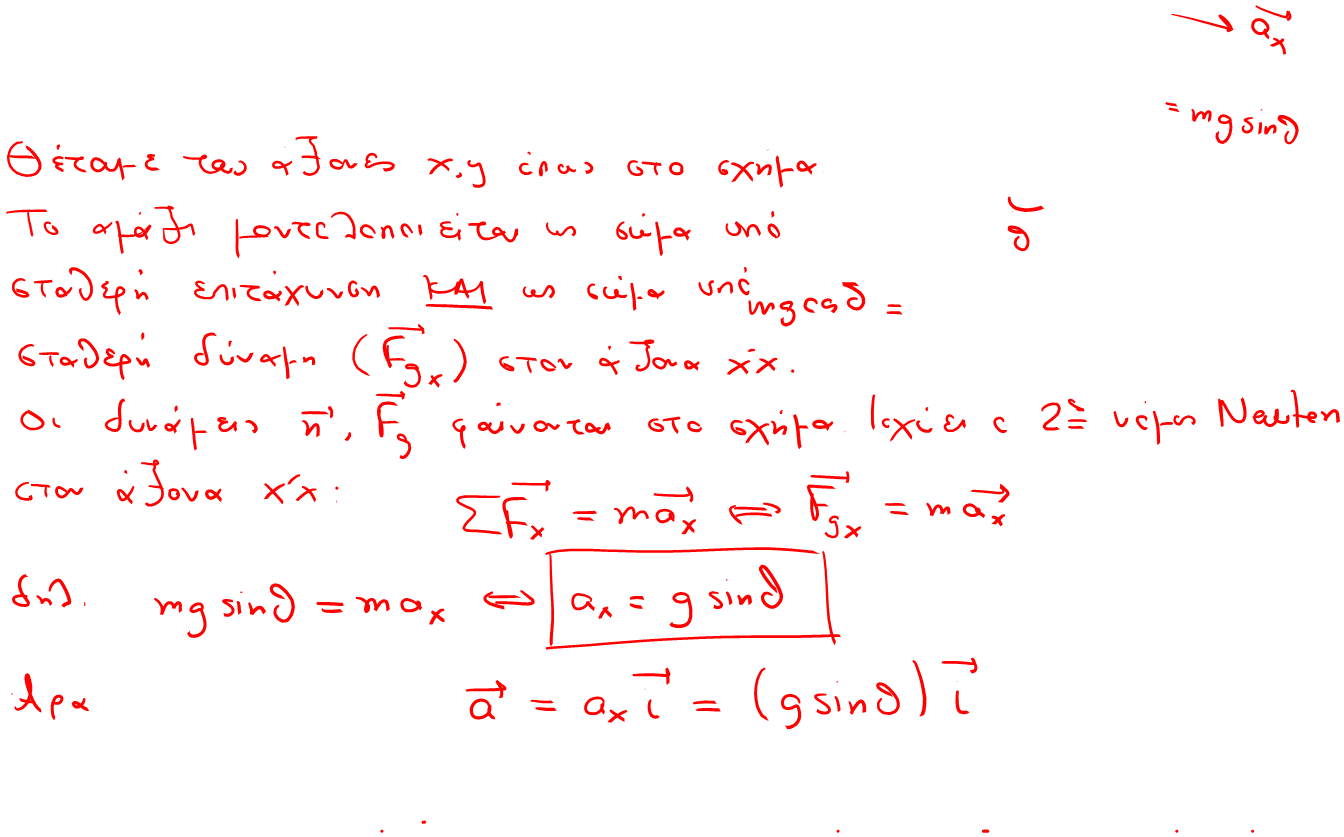 → a⃗ₓ
= mg sinθ
Θέτουμε τους άξονες x,y όπως στο σχήμα
Το αμάξι μοντελοποιείται ως σώμα υπό
θ
σταθερή επιτάχυνση ΚΑΙ ως σώμα υπό
mg cosθ =
σταθερή δύναμη (F⃗gₓ) στον άξονα x'x.
Οι δυνάμεις n⃗, F⃗g φαίνονται στο σχήμα. Ισχύει ο 2ος νόμος Newton
στον άξονα x'x:
ΣF⃗ₓ = ma⃗ₓ ⇔ F⃗gₓ = ma⃗ₓ
δηλ. mg sinθ = maₓ ⇔ aₓ = g sinθ
Άρα a⃗ = aₓ i⃗ = (g sinθ) i⃗